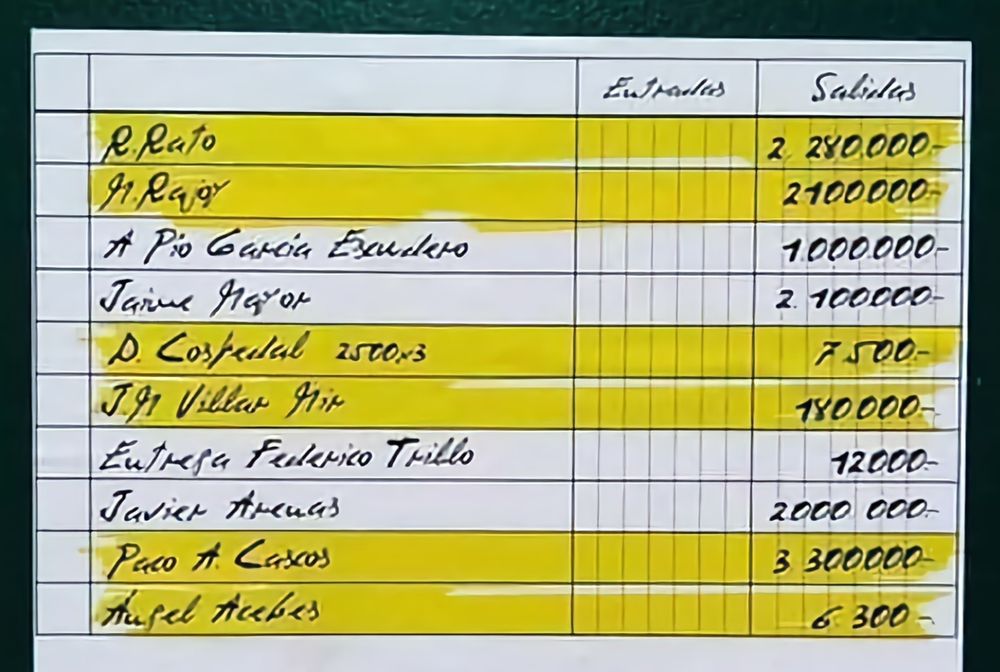 Entradas Salidas
R. Rato 2. 280.000-
M. Rajoy 2100000-
A Pio Garcia Escudero 1.000.000-
Jaime Mayor 2. 100.000-
D. Cospedal 2500x3 7.500-
J.M Villar Mir 180.000-
Entrega Federico Trillo 12000-
Javier Arenas 2000 000-
Paco A. Cascos 3 300000-
Ángel Acebes 6.300-